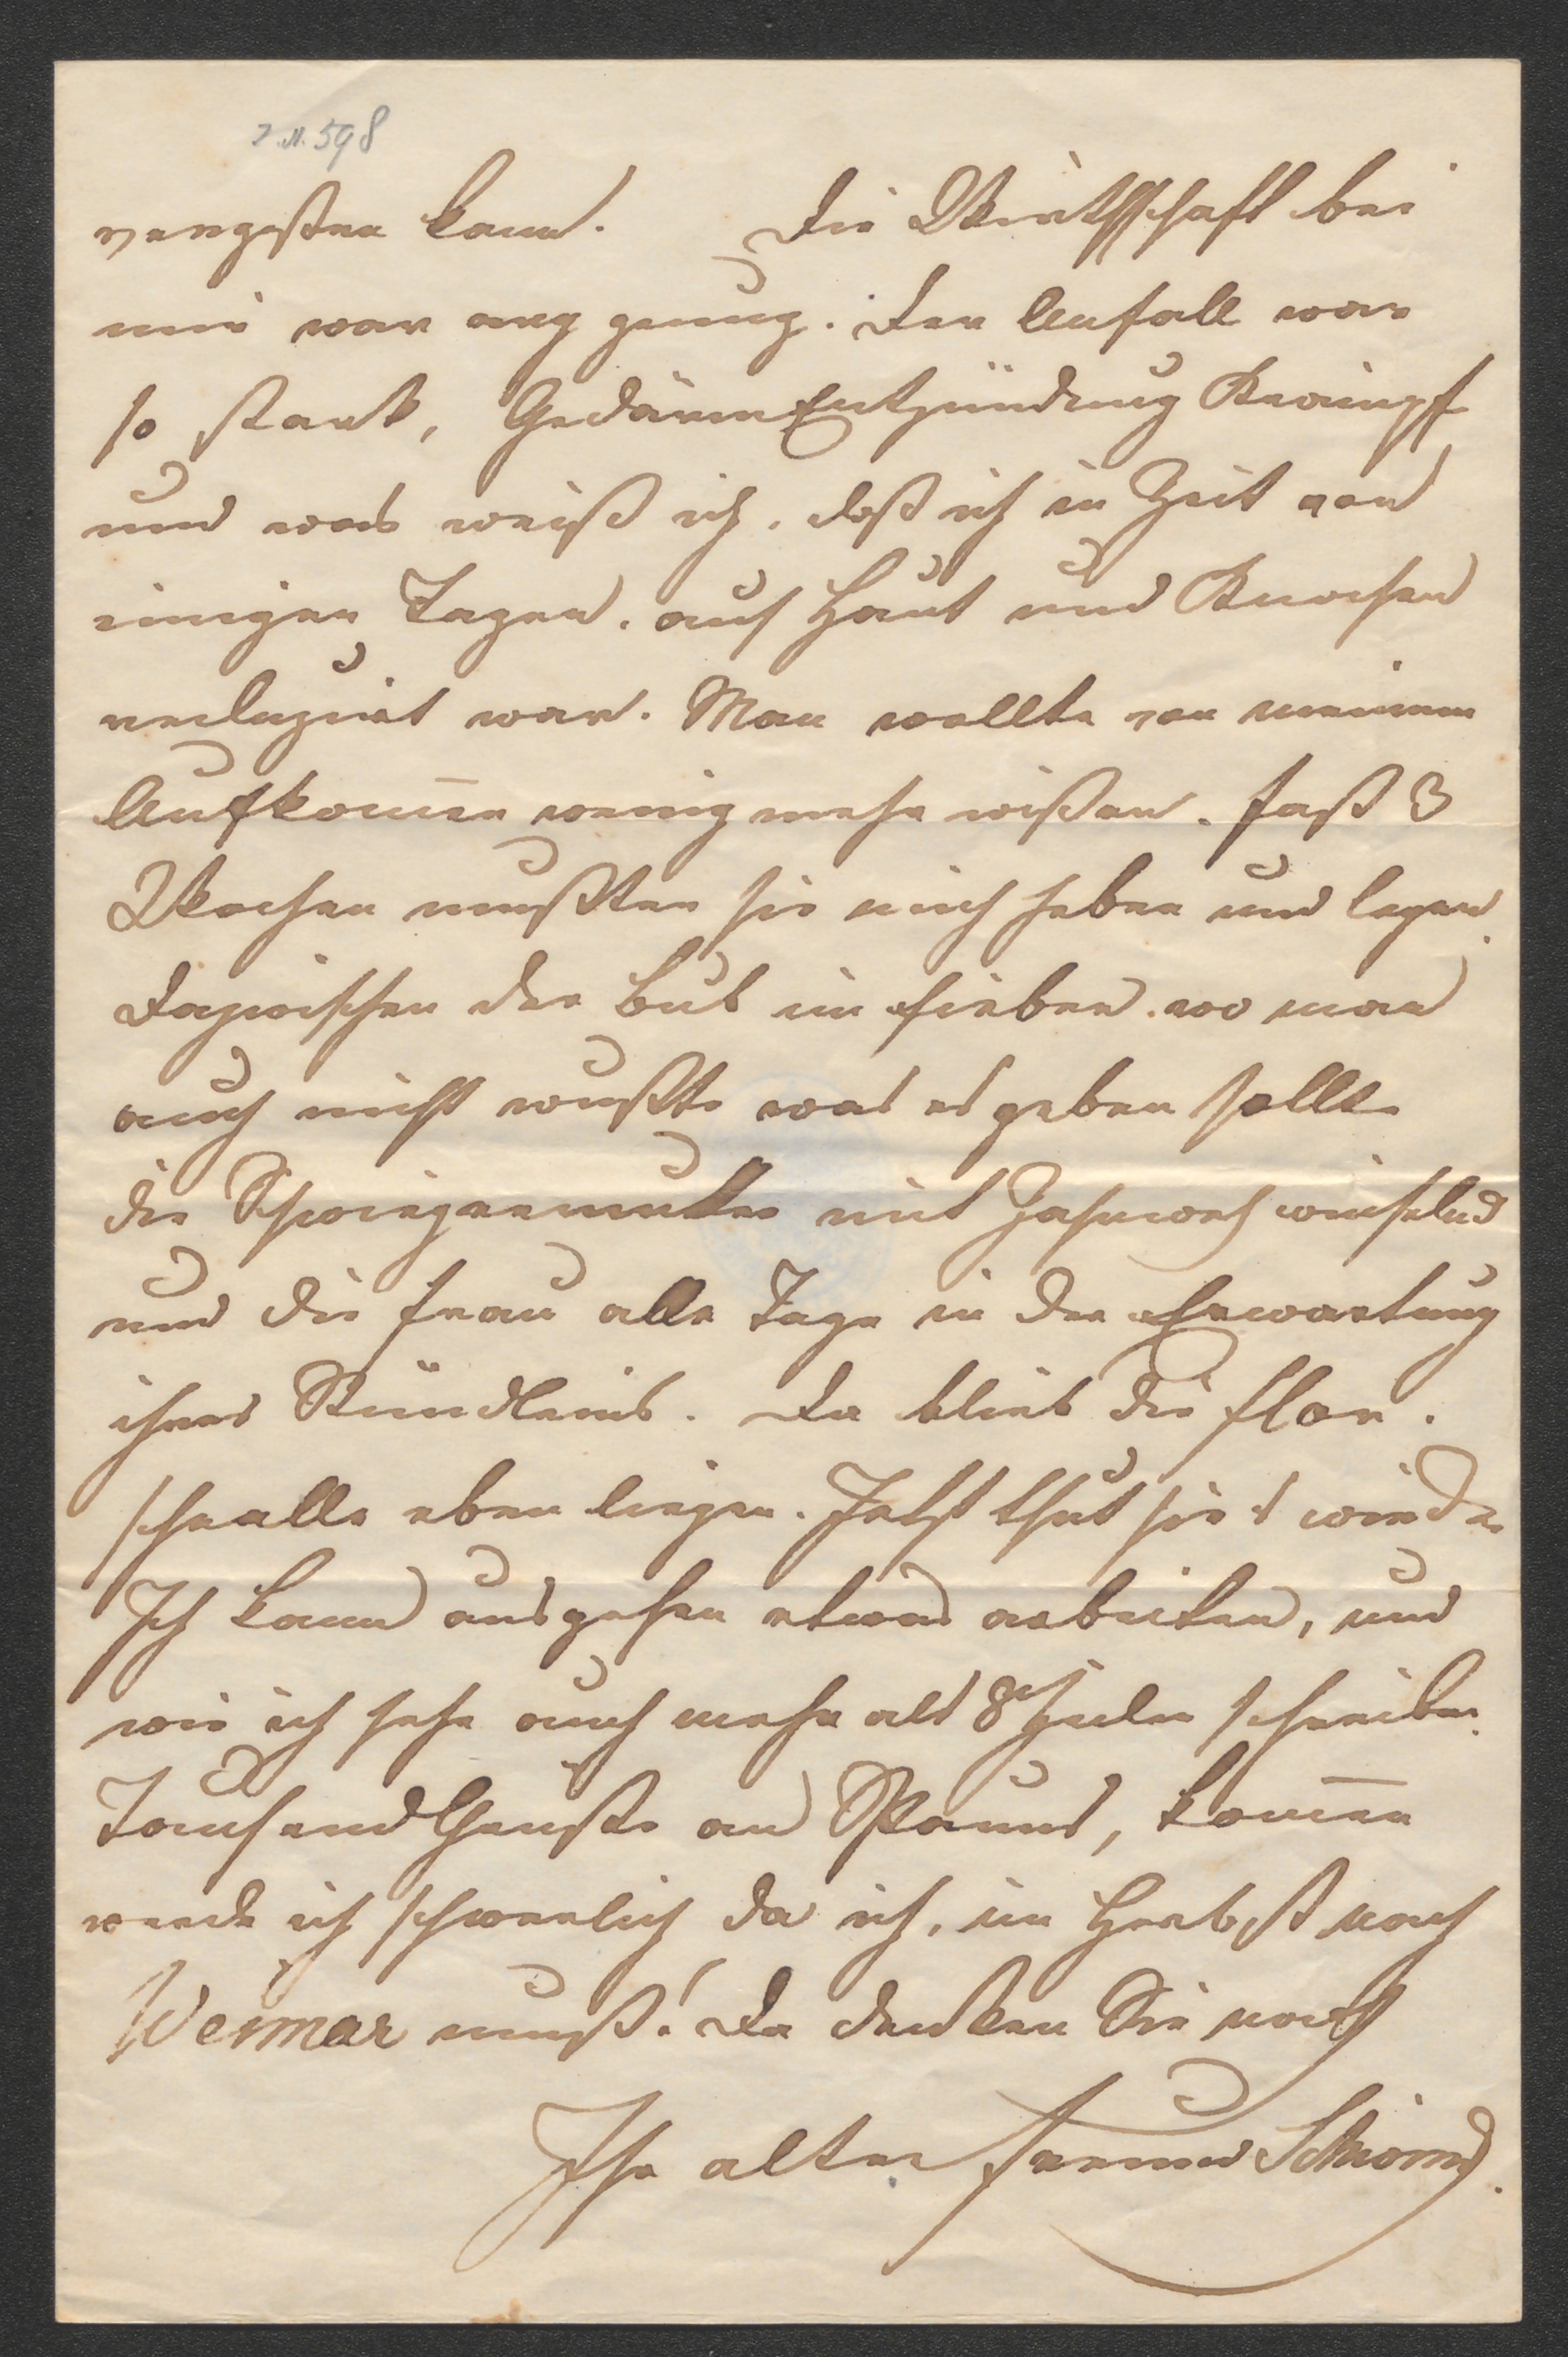 I.N. 598
vergeßen kann. Die Wirthschaft bei
mir war arg genug. Der Anfall war
so stark, GedärmEntzündung Krämpf
und was weiß ich. daß ich in Zeit von
einigen Tagen. auf Haut und Knochen
reduzirt war. Man wollte von meinem
Aufkom̅en wenig mehr wißen. fast 3
Wochen mußten sie mich heben und legen
dazwischen der Bub im Fieber. wo man
auch nicht wußte was es geben sollte
die Schwiegermutter mit Zahnweh winselnd
und die Frau alle Tage in der Erwartung
ihres Stündleins. Da blieb die
eben liegen. Jetzt thut sie's wieder
Ich kann ausgehen etwas arbeiten, und
wie ich sehe auch mehr als 8 Zeilen schreiben.
Tausend Grüße an Spauns, kom̅en
werde ich schwerlich da ich, im Herbst nach
Weimar muß! Da denken Sie noch
Ihr alter Freund Schwind.